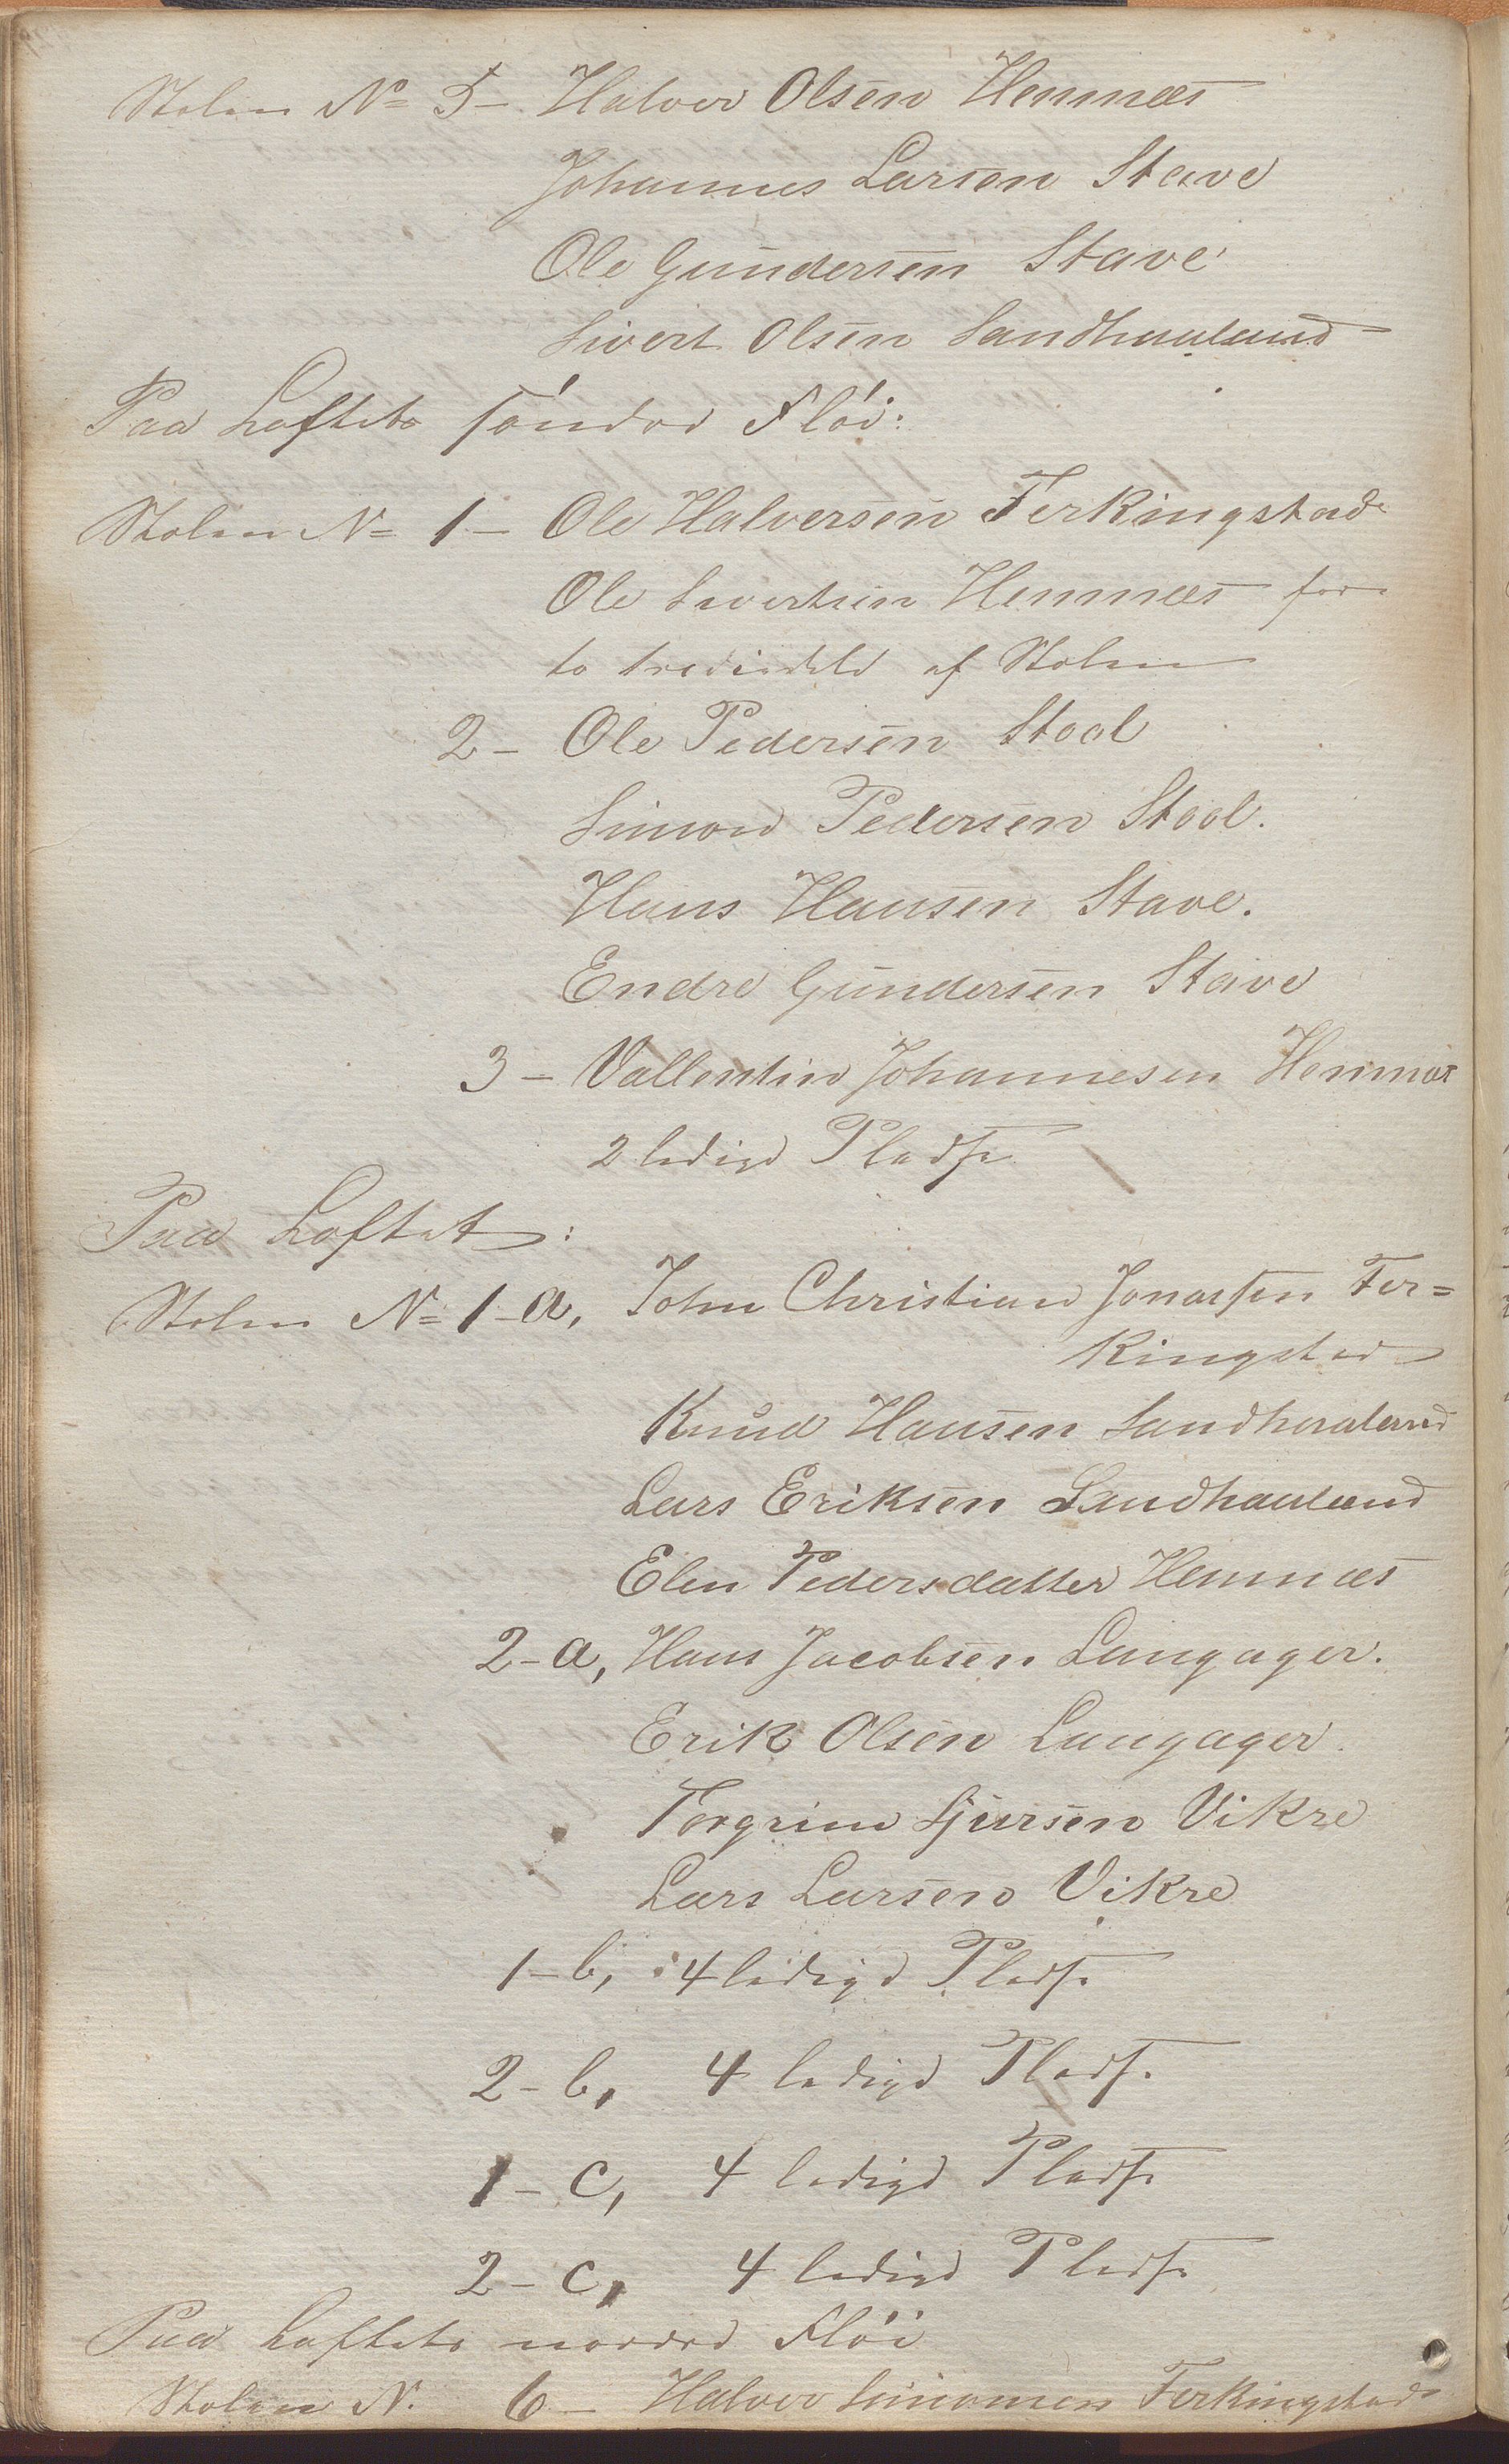 Stolen No 5 – Halvor Olsen Hemnæs
Johannes Larsen Stave
Ole Gundersen Stave
Sivert Olsen Sandhaaland
Paa Loftets søndre Fløi:
Stolen No 1 – Ole Halversen Ferkingstad
Ole Sivertsen Hemnæs for
to trediedele af Stolen
2 – Ole Pedersen Stool
Simon Pedersen Stool.
Hans Hansen Stave.
Endre Gundersen Stave
3 – Vallentin Johannesen Hemnæs
2 ledige Pladse
Paa Loftet:
Stolen No 1 – a, John Christian Jonassen Fer=
kingstad
Knud Hansen Sandhaaland
Lars Eriksen Sandhaaland
Elen Pedersdatter Hemnæs
2 – a, Hans Jacobsen Langager.
Erik Olsen Langager.
Torgrim Sjursen Vikre
Lars Larsen Vikre
1 – b, 4 ledige Pladse
2 – b, 4 ledige Pladse
1 – c, 4 ledige Pladse
2 – c, 4 ledige Pladse
Paa Loftets nordre Fløi
Stolen N. 6 – Halvor Simonsen Ferkingstad